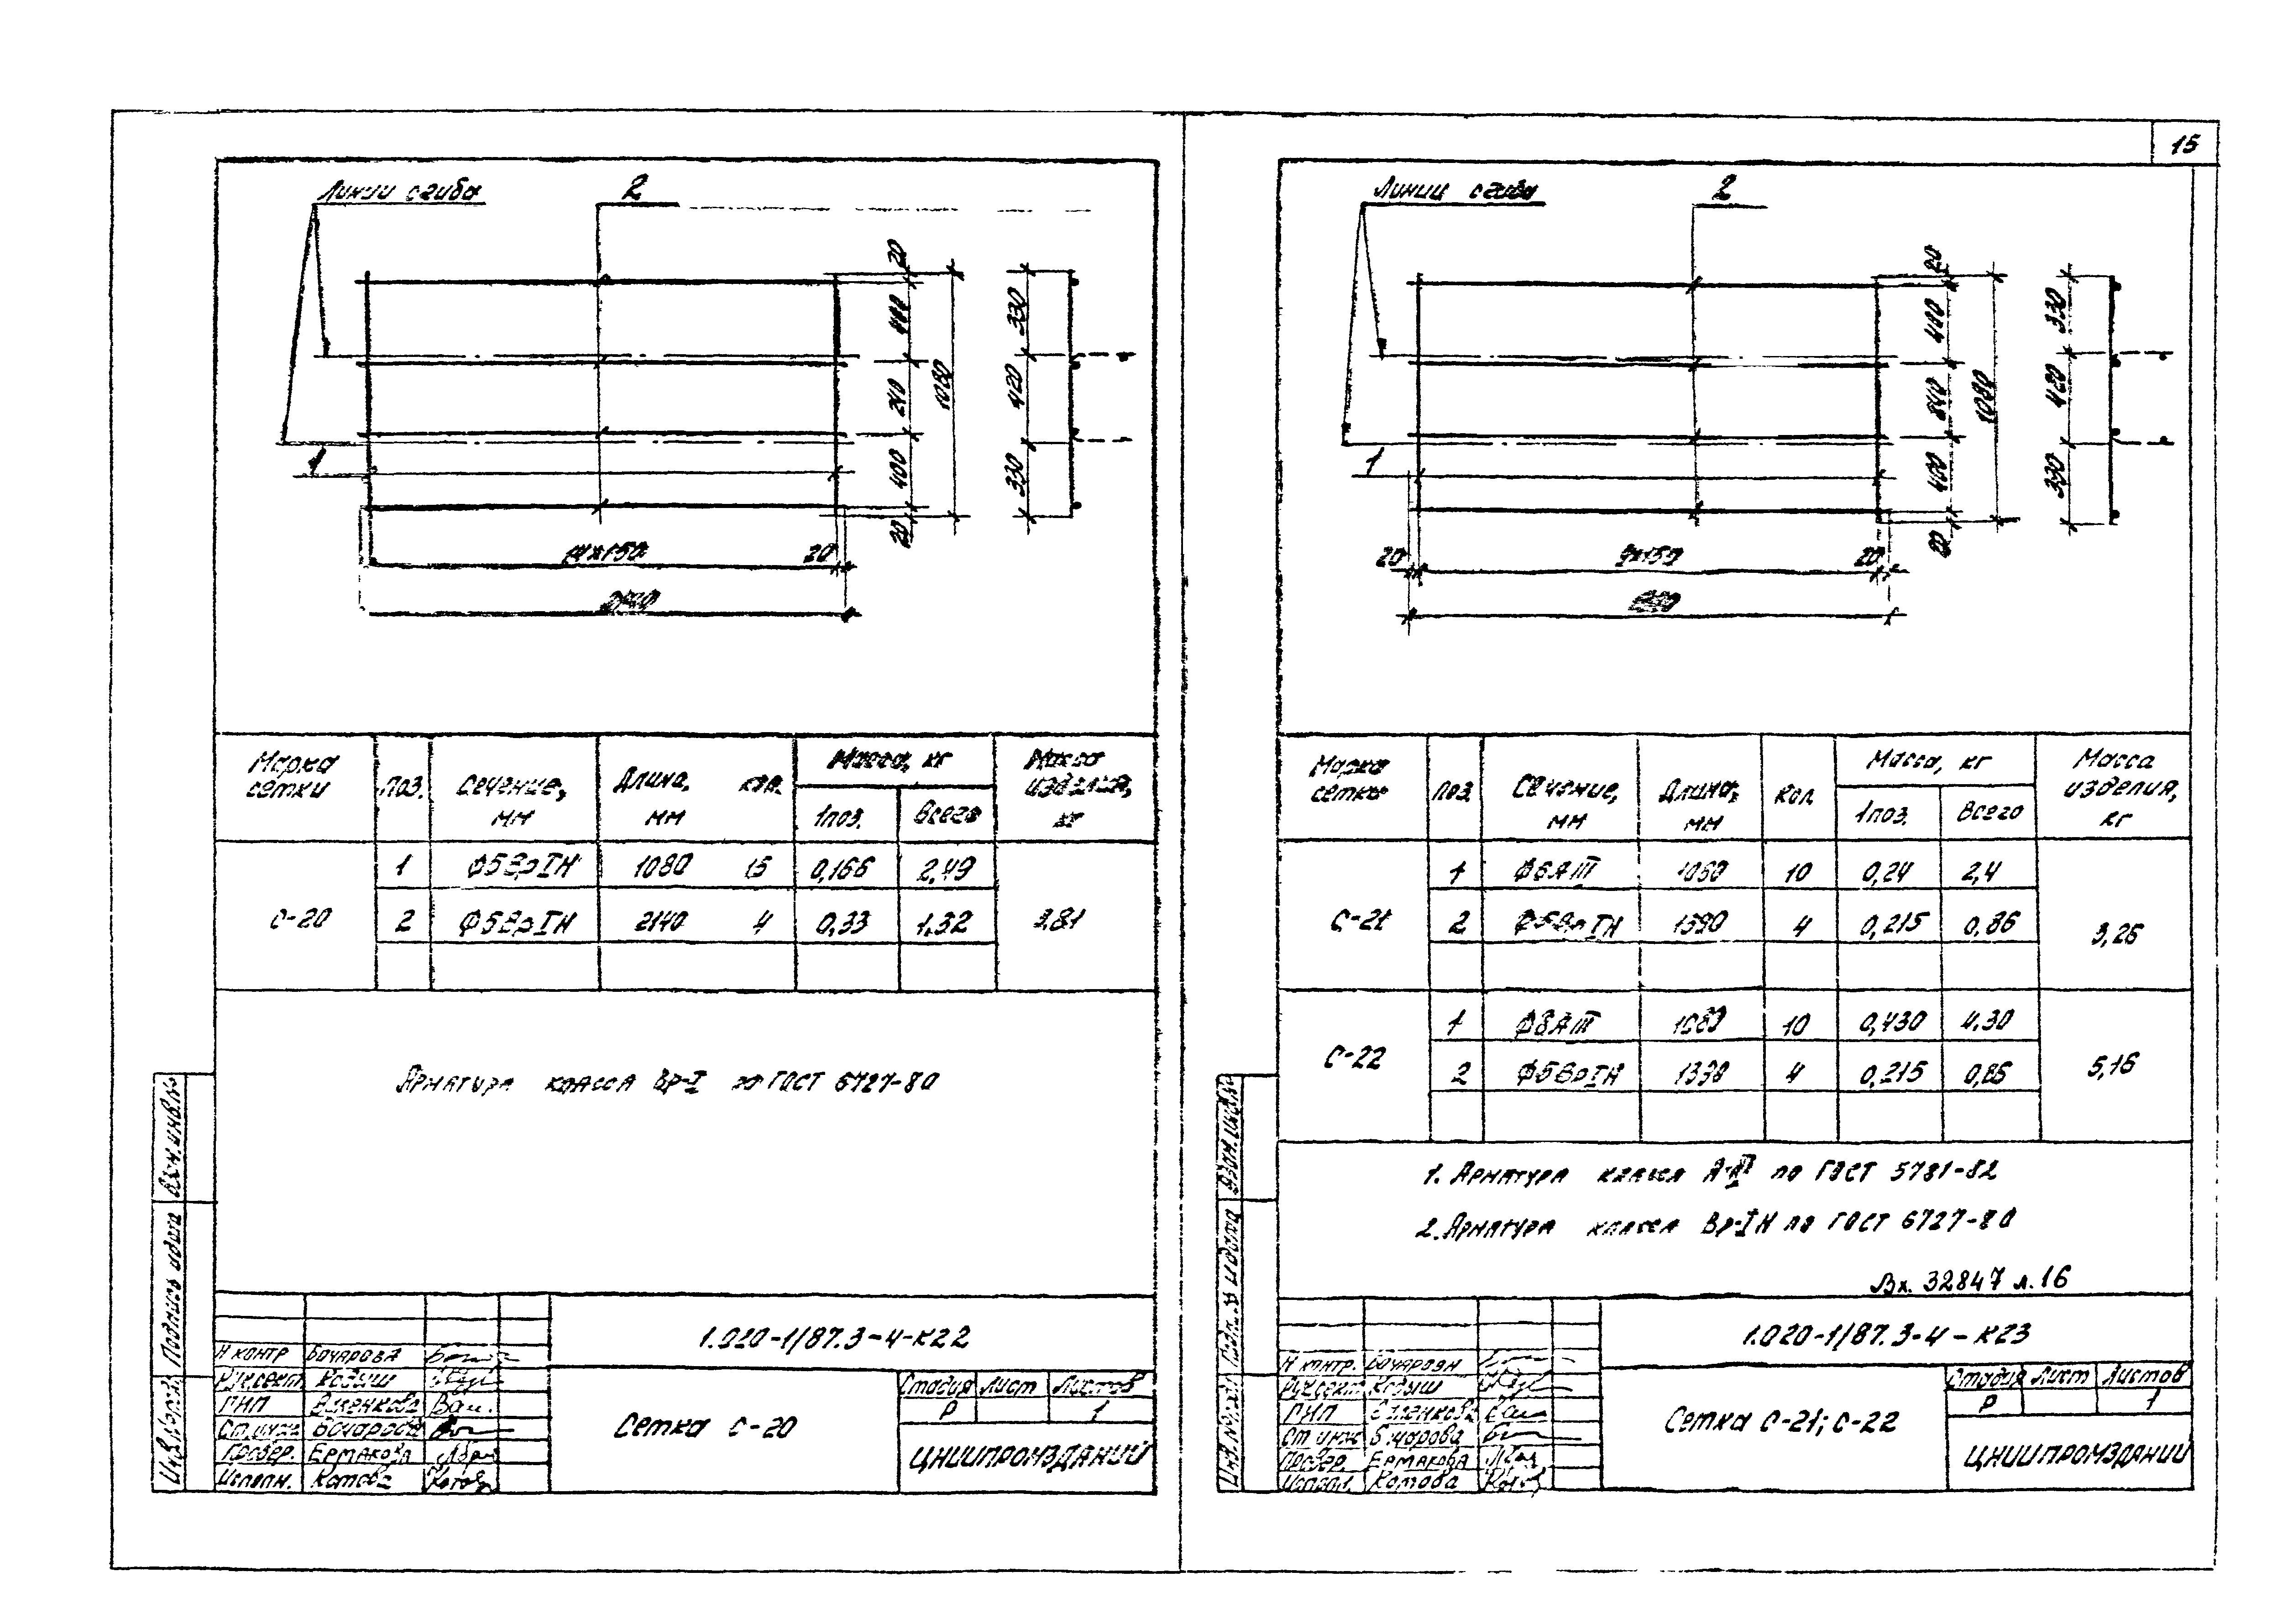 15
Линии сгиба
2
20
400
240
400
20
1080
330
420
330
1
14х150
20
2140
Марка сетки
поз.
Сечение, мм
Длина, мм
кол.
Масса, кг
1поз.
Всего
Масса изделия, кг
С-20
1 Ф5ВрIН 1080 15 0,166 2,49
2 Ф5ВрIН 2140 4 0,33 1,32
3,81
Арматура класса Вр-I по ГОСТ 6727-80
Взам.инв.№
Подпись и дата
Инв.№ подл.
1.020-1/87.3-4-К22
Н контр Бочарова
Рук.сект. Кодыш
ГИП
Ст.инж. Бочарова
Провер. Ермакова
Исполн. Котова
Сетка С-20
Стадия Лист Листов
Р 1
ЦНИИПРОМЗДАНИЙ
Линии сгиба
2
20
400
240
400
20
1080
330
420
330
1
20
9х150
20
Марка сетки
поз.
Сечение, мм
Длина, мм
кол.
Масса, кг
1поз.
Всего
Масса изделия, кг
С-21
1 Ф6АIII 1080 10 0,24 2,4
2 Ф5ВрIН 1390 4 0,215 0,86
3,26
С-22
1 Ф8АIII 1080 10 0,430 4.30
2 Ф5ВрIН 4 0,215 0,86
5,16
1. Арматура класса А-III по ГОСТ 5781-82
2. Арматура класса Вр-IН по ГОСТ 6727-80
Вх. 32847 л.16
Взам.инв.№
Подп. и дата
Инв.№ подл.
1.020-1/87.3-4-К23
Н контр. Бочарова
Рук.сект. Кодыш
ГИП
Ст инж Бочарова
Провер. Ермакова
Исполн. Котова
Сетка С-21; С-22
Стадия Лист Листов
Р 1
ЦНИИПРОМЗДАНИЙ